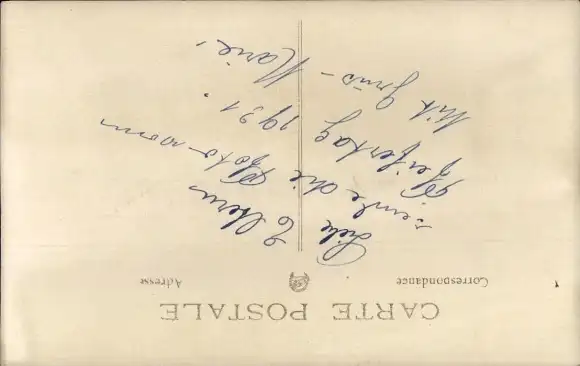 CARTE POSTALE
Correspondance
Adresse
Liebe Eltern
sende die Foto vom
Feiertag 1931.
Mit Grüß - Marie.